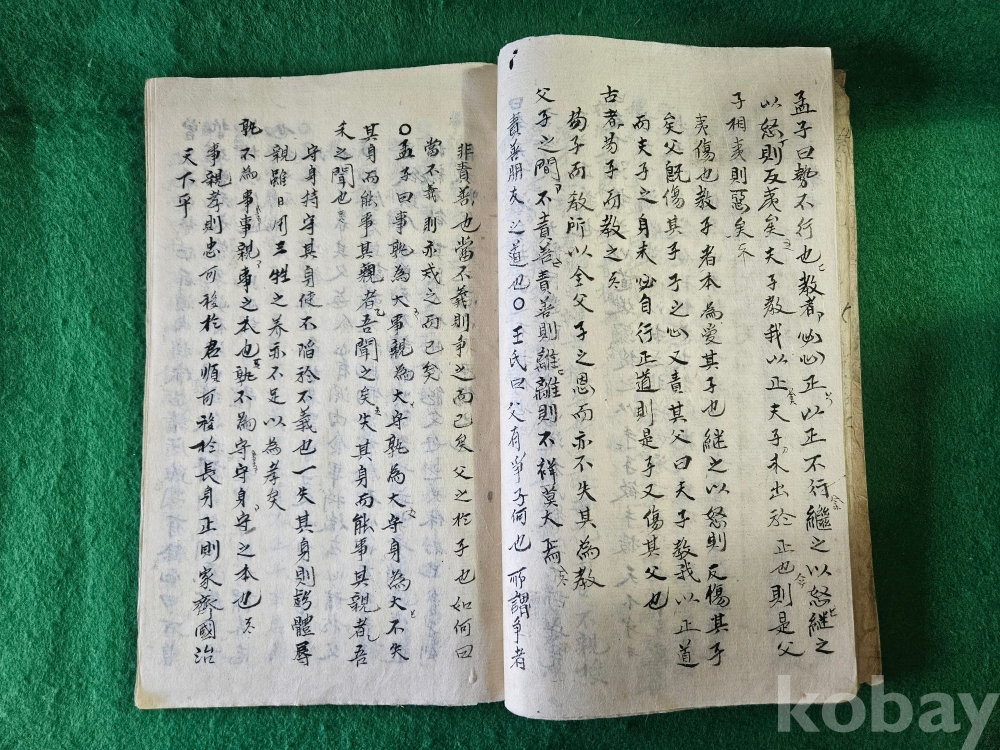 孟子曰勢不行也教者必以正以正不行繼之以怒繼之
以怒則反夷矣夫子教我以正夫子未出於正也則是父
子相夷則惡矣
夷傷也教子者本為愛其子也繼之以怒則反傷其子
矣父旣傷其子子之心又責其父曰夫子教我以正道
而夫子之身未必自行正道則是子又傷其父也
古者易子而教之
易子而教所以全父子之恩而亦不失其為教
父子之間不責善責善則離離則不祥莫大焉
曰責善朋友之道也○王氏曰父有爭子何也所謂爭者
非責善也當不義則爭之而已矣父之於子也如何曰
當不義則亦戒之而已矣
○孟子曰事孰為大事親為大守孰為大守身為大不失
其身而能事其親者吾聞之矣失其身而能事其親者吾
未之聞也
守身持守其身使不陷於不義也一失其身則虧體辱
親雖日用三牲之養亦不足以為孝矣
孰不為事事親事之本也孰不為守守身守之本也
事親孝則忠可移於君順可移於長身正則家齊國治
天下平
kobay